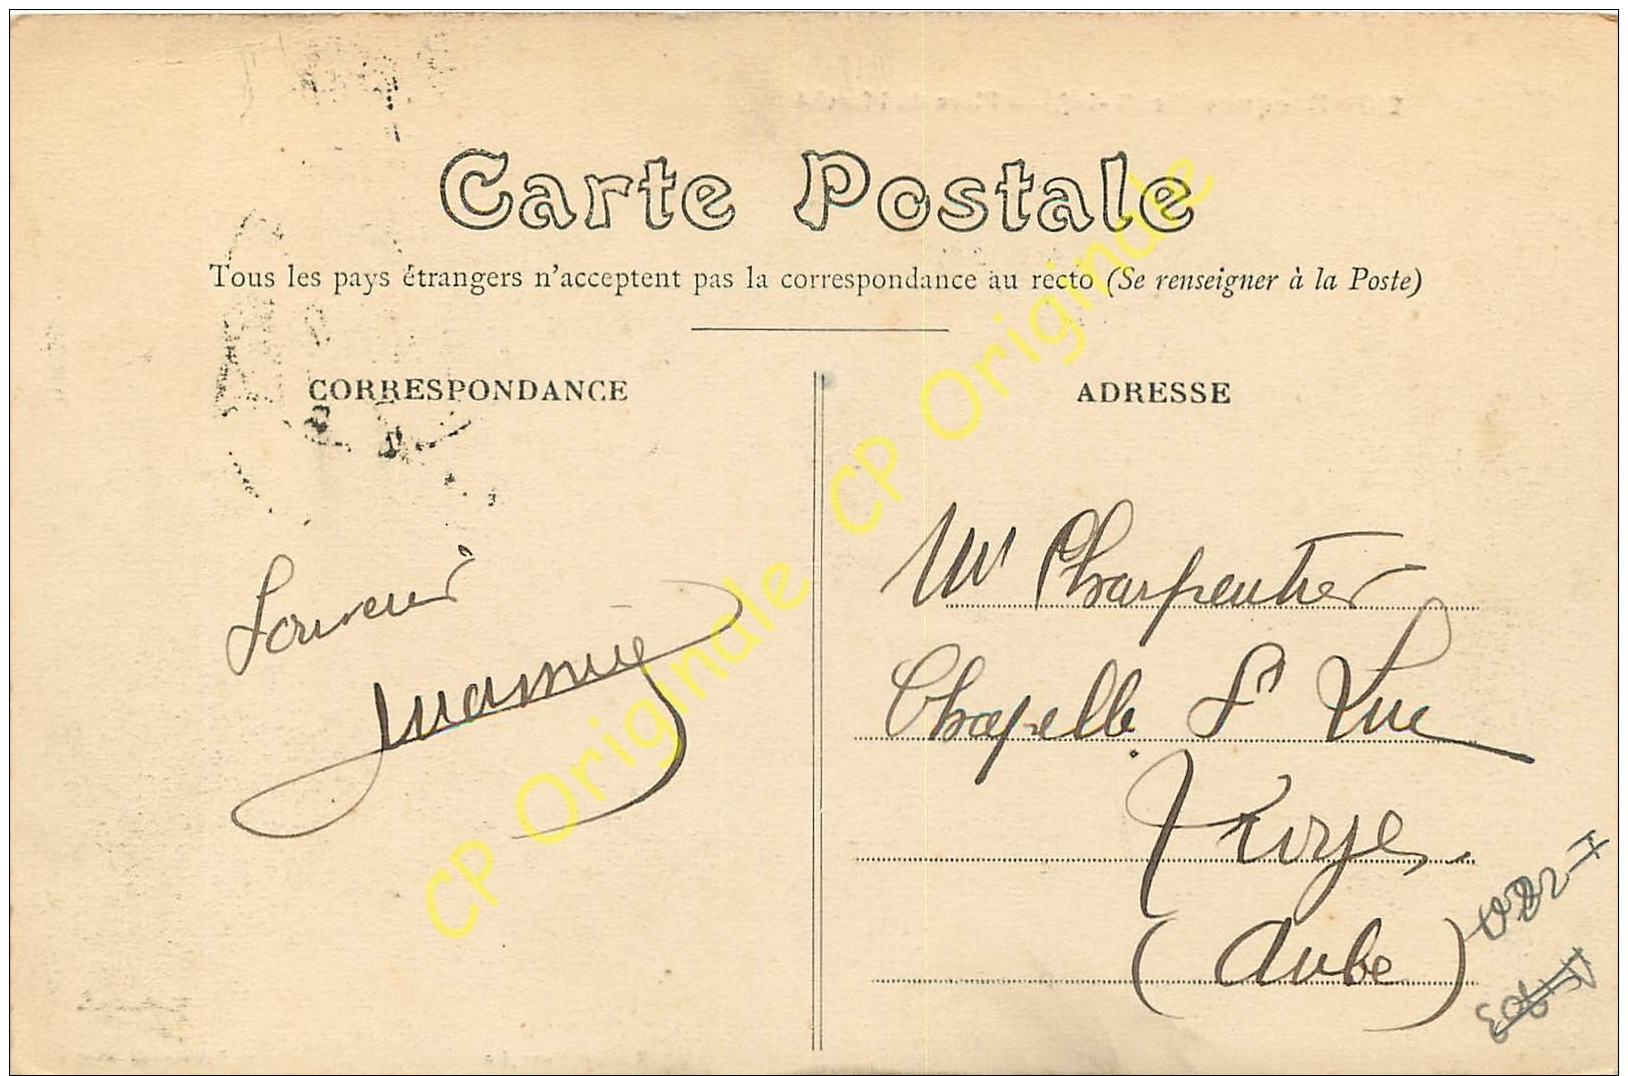 Carte Postale
Tous les pays étrangers n'acceptent pas la correspondance au recto (Se renseigner à la Poste)
CORRESPONDANCE
Souvenir
ADRESSE
Mr Charpentier
Chapelle St Luc
Troyes
(Aube)
CP Originale
CP Originale